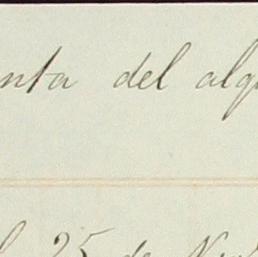 nta del alq
25 de Nov